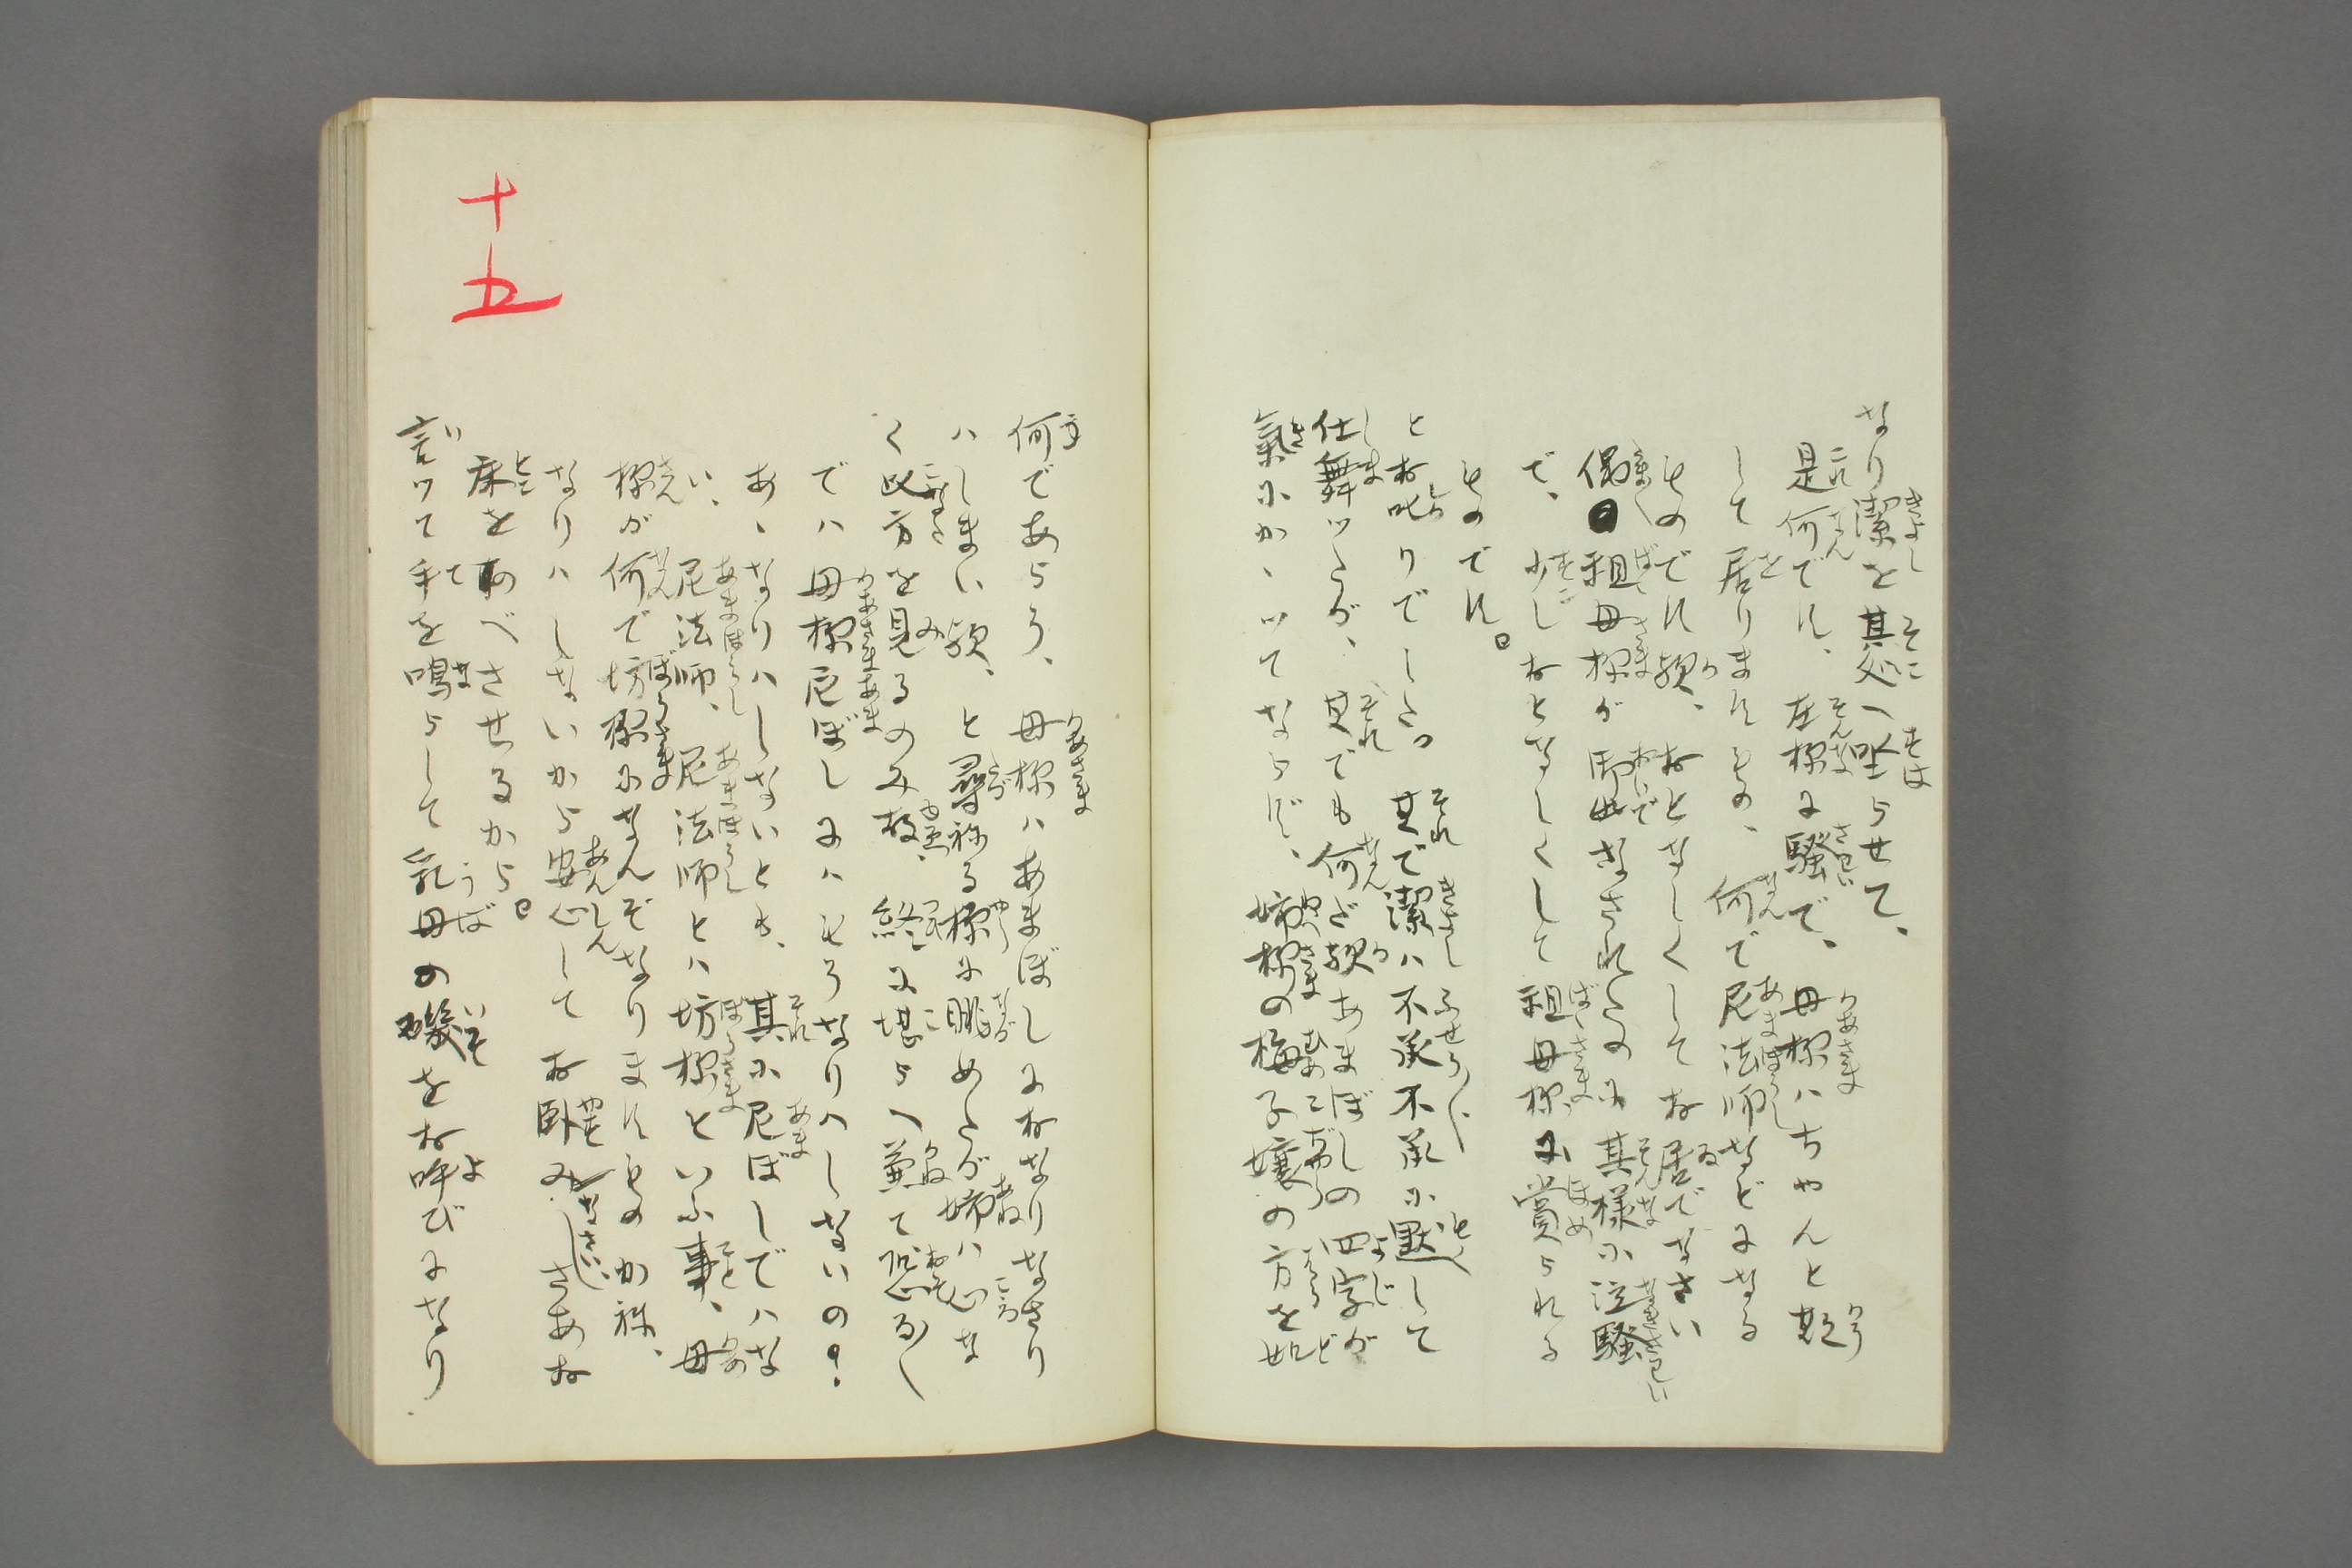 なり潔を其処へ坐らせて、
是何です、左様に騒で、母様ハちやんと斯
して居りますもの、何で尼法師などになる
ものです歟、おとなしくしてお居でなさい
偶祖母様が御出なされたのに其様に泣騒
で、少しおとなしくして祖母様に賞られる
ものです。
とお叱りでした。其で潔ハ不承不承に黙して
仕舞ツたが、其でも何だ歟あまぼしの四字が
氣にかゝツてならず、姉様の梅子嬢の方を
何であらう、母様ハあまぼしにおなりなさり
ハしまい歟、と尋ねる様に眺めたが姉ハ心な
く此方を見るのみ故、終に堪らへ兼て恐る〱
でハ母様尼ぼしにハもうなりハしないの?
あゝなりハしないとも、其に尼ぼしでハな
い、尼法師、尼法師とハ坊様といふ事、母
様が何で坊様になんぞなりますものか祢、
なりハしないから安心してお臥みなさいしさあお
床をのべさせるから。
言ツて手を鳴らして乳母の磯をお呼びになり
十五